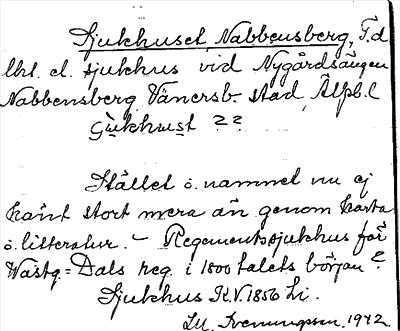 Sjukhuset, Nabbensberg, F.d
lht. el. sjukhus vid Nygårdsängen
Nabbensberg, Vänersb. stad, Älvb. l
sjukhust ??
Stället o. namnet nu ej
känt stort mera än genom karta
o. litteratur. – Regementssjukhus för
Västg.=Dals reg. i 1800 talets början?
Sjukhus K.V. 1856 Li.
1942